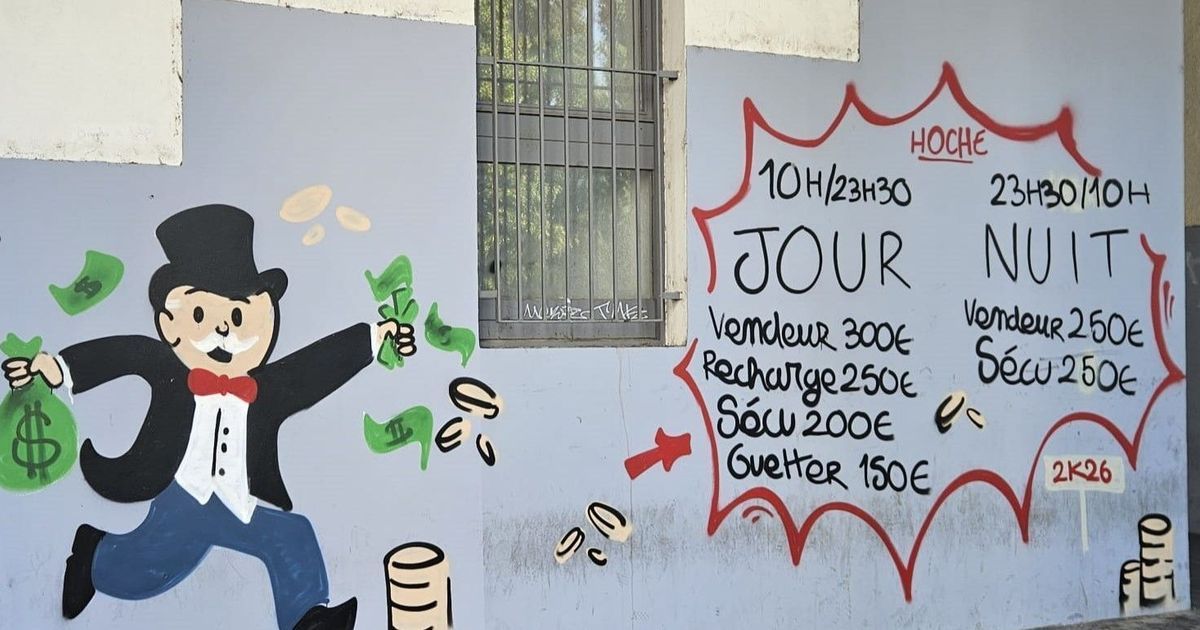 HOCHE
10H/23H30
JOUR
Vendeur 300€
Recharge 250€
Sécu 200€
Guetter 150€
23H30/10H
NUIT
Vendeur 250€
Sécu 250€
2K26
$